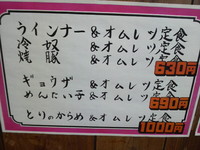 うインナー&オムレッ定食
冷奴&オムレッ定食
焼豚&オムレッ定食
630円
ギョウザ&オムレッ定食
めんたい子&オムレッ定食
690円
とりのからめ&オムレッ定食
1000円